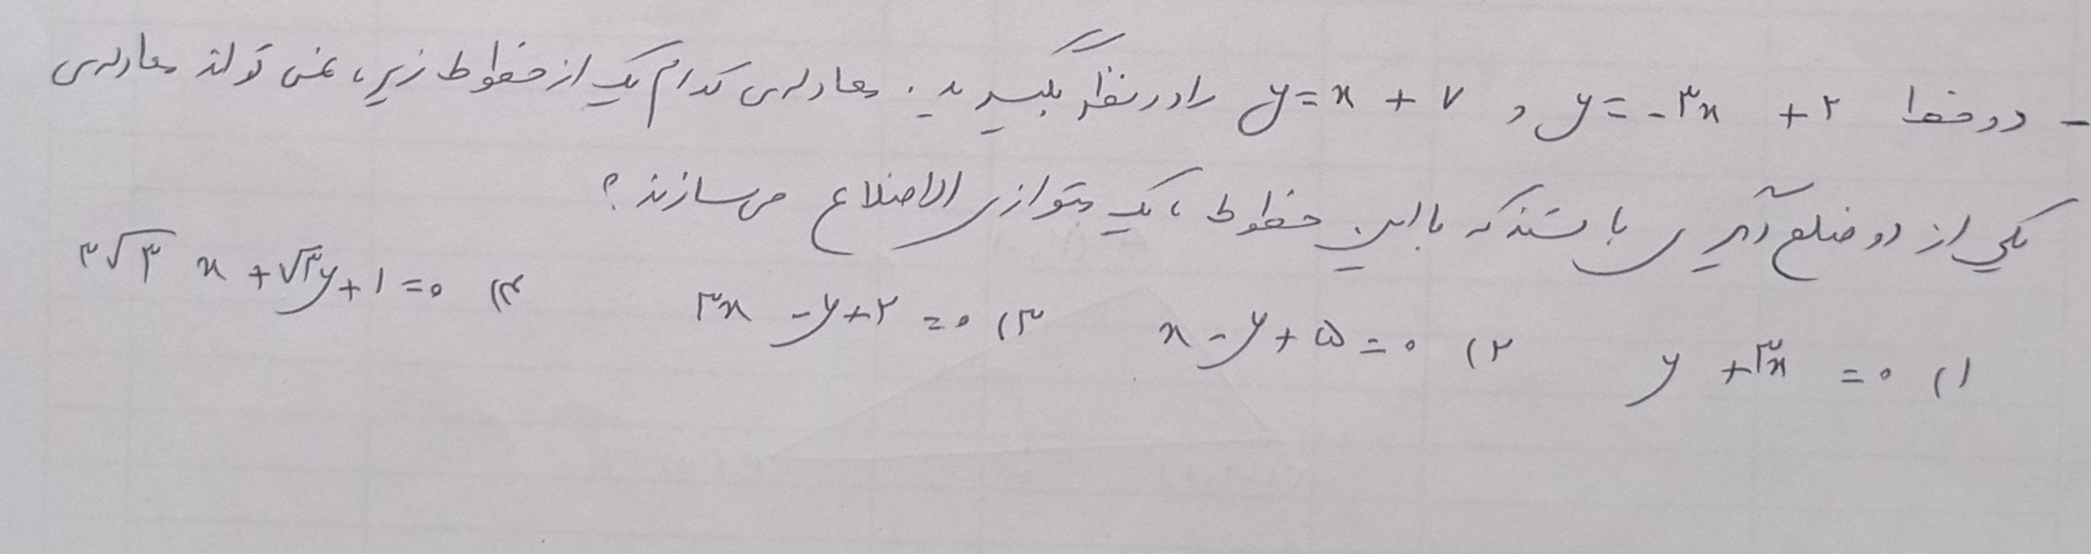 - دو خط y = -۳x + ۲ و y = x + ۷ را در نظر بگیرید. معادله‌ی کدام یک از خطوط زیر، نمی تواند معادله‌ی
یکی از دو ضلع دیگری باشند که با این خطوط، یک متوازی الاضلاع می‌سازند؟
۱) y + ۳x = ۰ ۲) x - y + ۵ = ۰ ۳) ۳x - y + ۲ = ۰ ۴) ۳√۳ x + √۳y + ۱ = ۰